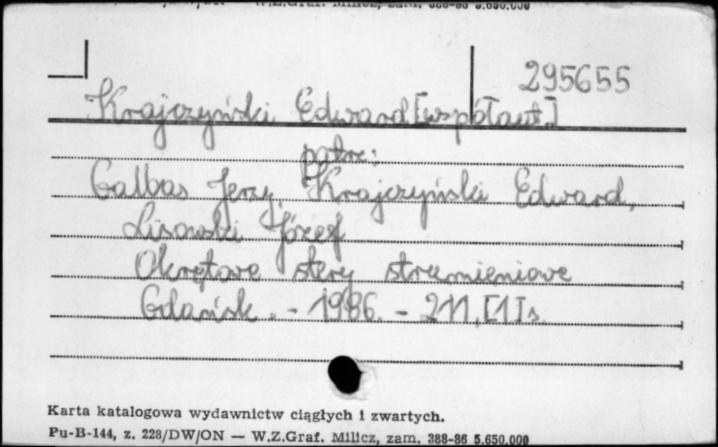 W.Z.Graf. Milicz, zam. 388-86 5.650.000
295655
Krajczyński Edward [współaut.]
patrz:
Galbas Jerzy, Krajczyński Edward,
Lisowski Józef
Okrętowe stery strumieniowe
Gdańsk. - 1986. - 211, [1] s.
Karta katalogowa wydawnictw ciągłych i zwartych.
Pu-B-144, z. 228/DW/ON — W.Z.Graf. Milicz, zam. 388-86 5.650.000